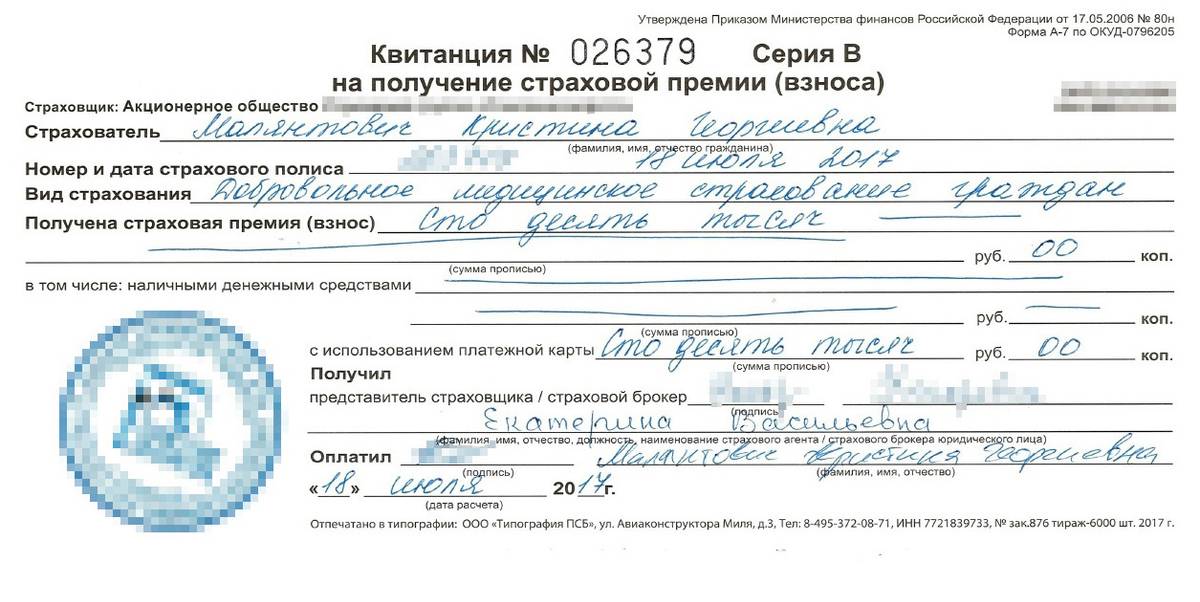 Утверждена Приказом Министерства финансов Российской Федерации от 17.05.2006 № 80н
Форма А-7 по ОКУД-0796205
Квитанция № 026379 Серия В
на получение страховой премии (взноса)
Страховщик: Акционерное общество
Страхователь Малянтович Кристина Георгиевна
(фамилия, имя, отчество гражданина)
Номер и дата страхового полиса 18 июля 2017
Вид страхования Добровольное медицинское страхование граждан
Получена страховая премия (взнос) Сто десять тысяч
руб. 00 коп.
(сумма прописью)
в том числе: наличными денежными средствами
руб. коп.
(сумма прописью)
с использованием платежной карты Сто десять тысяч руб. 00 коп.
(сумма прописью)
Получил
представитель страховщика / страховой брокер
(подпись)
Екатерина Васильевна
(фамилия, имя, отчество, должность, наименование страхового агента / страхового брокера юридического лица)
Оплатил Малянтович Кристина Георгиевна
(подпись) (фамилия, имя, отчество)
«18» июля 2017г.
(дата расчета)
Отпечатано в типографии: ООО «Типография ПСБ», ул. Авиаконструктора Миля, д.3, Тел: 8-495-372-08-71, ИНН 7721839733, № зак.876 тираж-6000 шт. 2017 г.